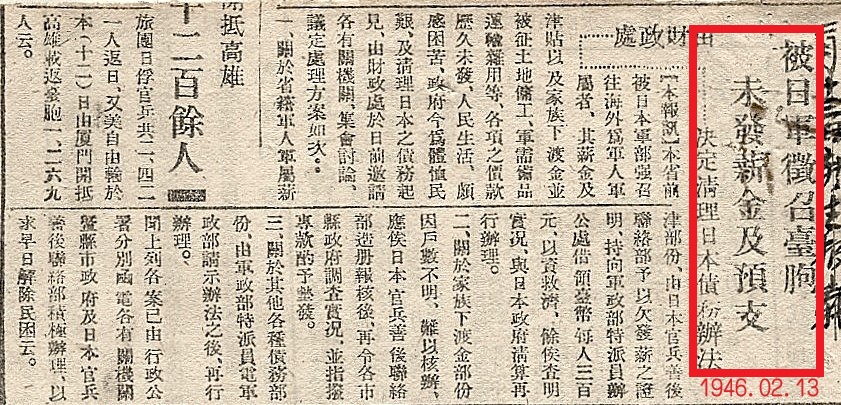 被日軍徵召臺胞
未發薪金及預支
決定清理日本債務辦法
由財政處
【本報訊】本省前
被日本軍部强召
往海外爲軍人軍
屬者、其薪金及
津貼以及家族下渡金並
被征土地傭工、軍需備品
運輸雜用等、各項之價款
歷久未發、人民生活、頗
感困苦、政府今爲體恤民
艱、及清理日本之債務起
見、由財政處於日前邀請
各有關機關、集會討論、
議定處理方案如次。
一、關於省籍軍人軍屬薪
津部份、由日本官兵善後
聯絡部予以欠發薪之證
明、持向軍政部特派員辦
公處借領臺幣、每人三百
元、以資救濟、餘侯查明
實況、與日本政府清算再
行辦理。
二、關於家族下渡金部份
因戶數不明、難以核辦、
應侯日本官兵善後聯絡
部造册報核後、再令各市
縣政府調查實況、並指撥
專款酌予墊發。
三、關於其他各種債務部
份、由軍政部特派員電軍
政部請示辦法之後、再行
辦理。
聞上列各案已由行政公
署分別函電各有關機關
曁縣市政府及日本官兵
善後聯絡部積極辦理、以
求早日解除民困云。
開抵高雄
十二百餘人
旅團日俘官兵共二、四二
一人返日、又美自由輪於
本（十二）日由厦門開抵
高雄載返臺胞一、二六九
人云。
1946.02.13